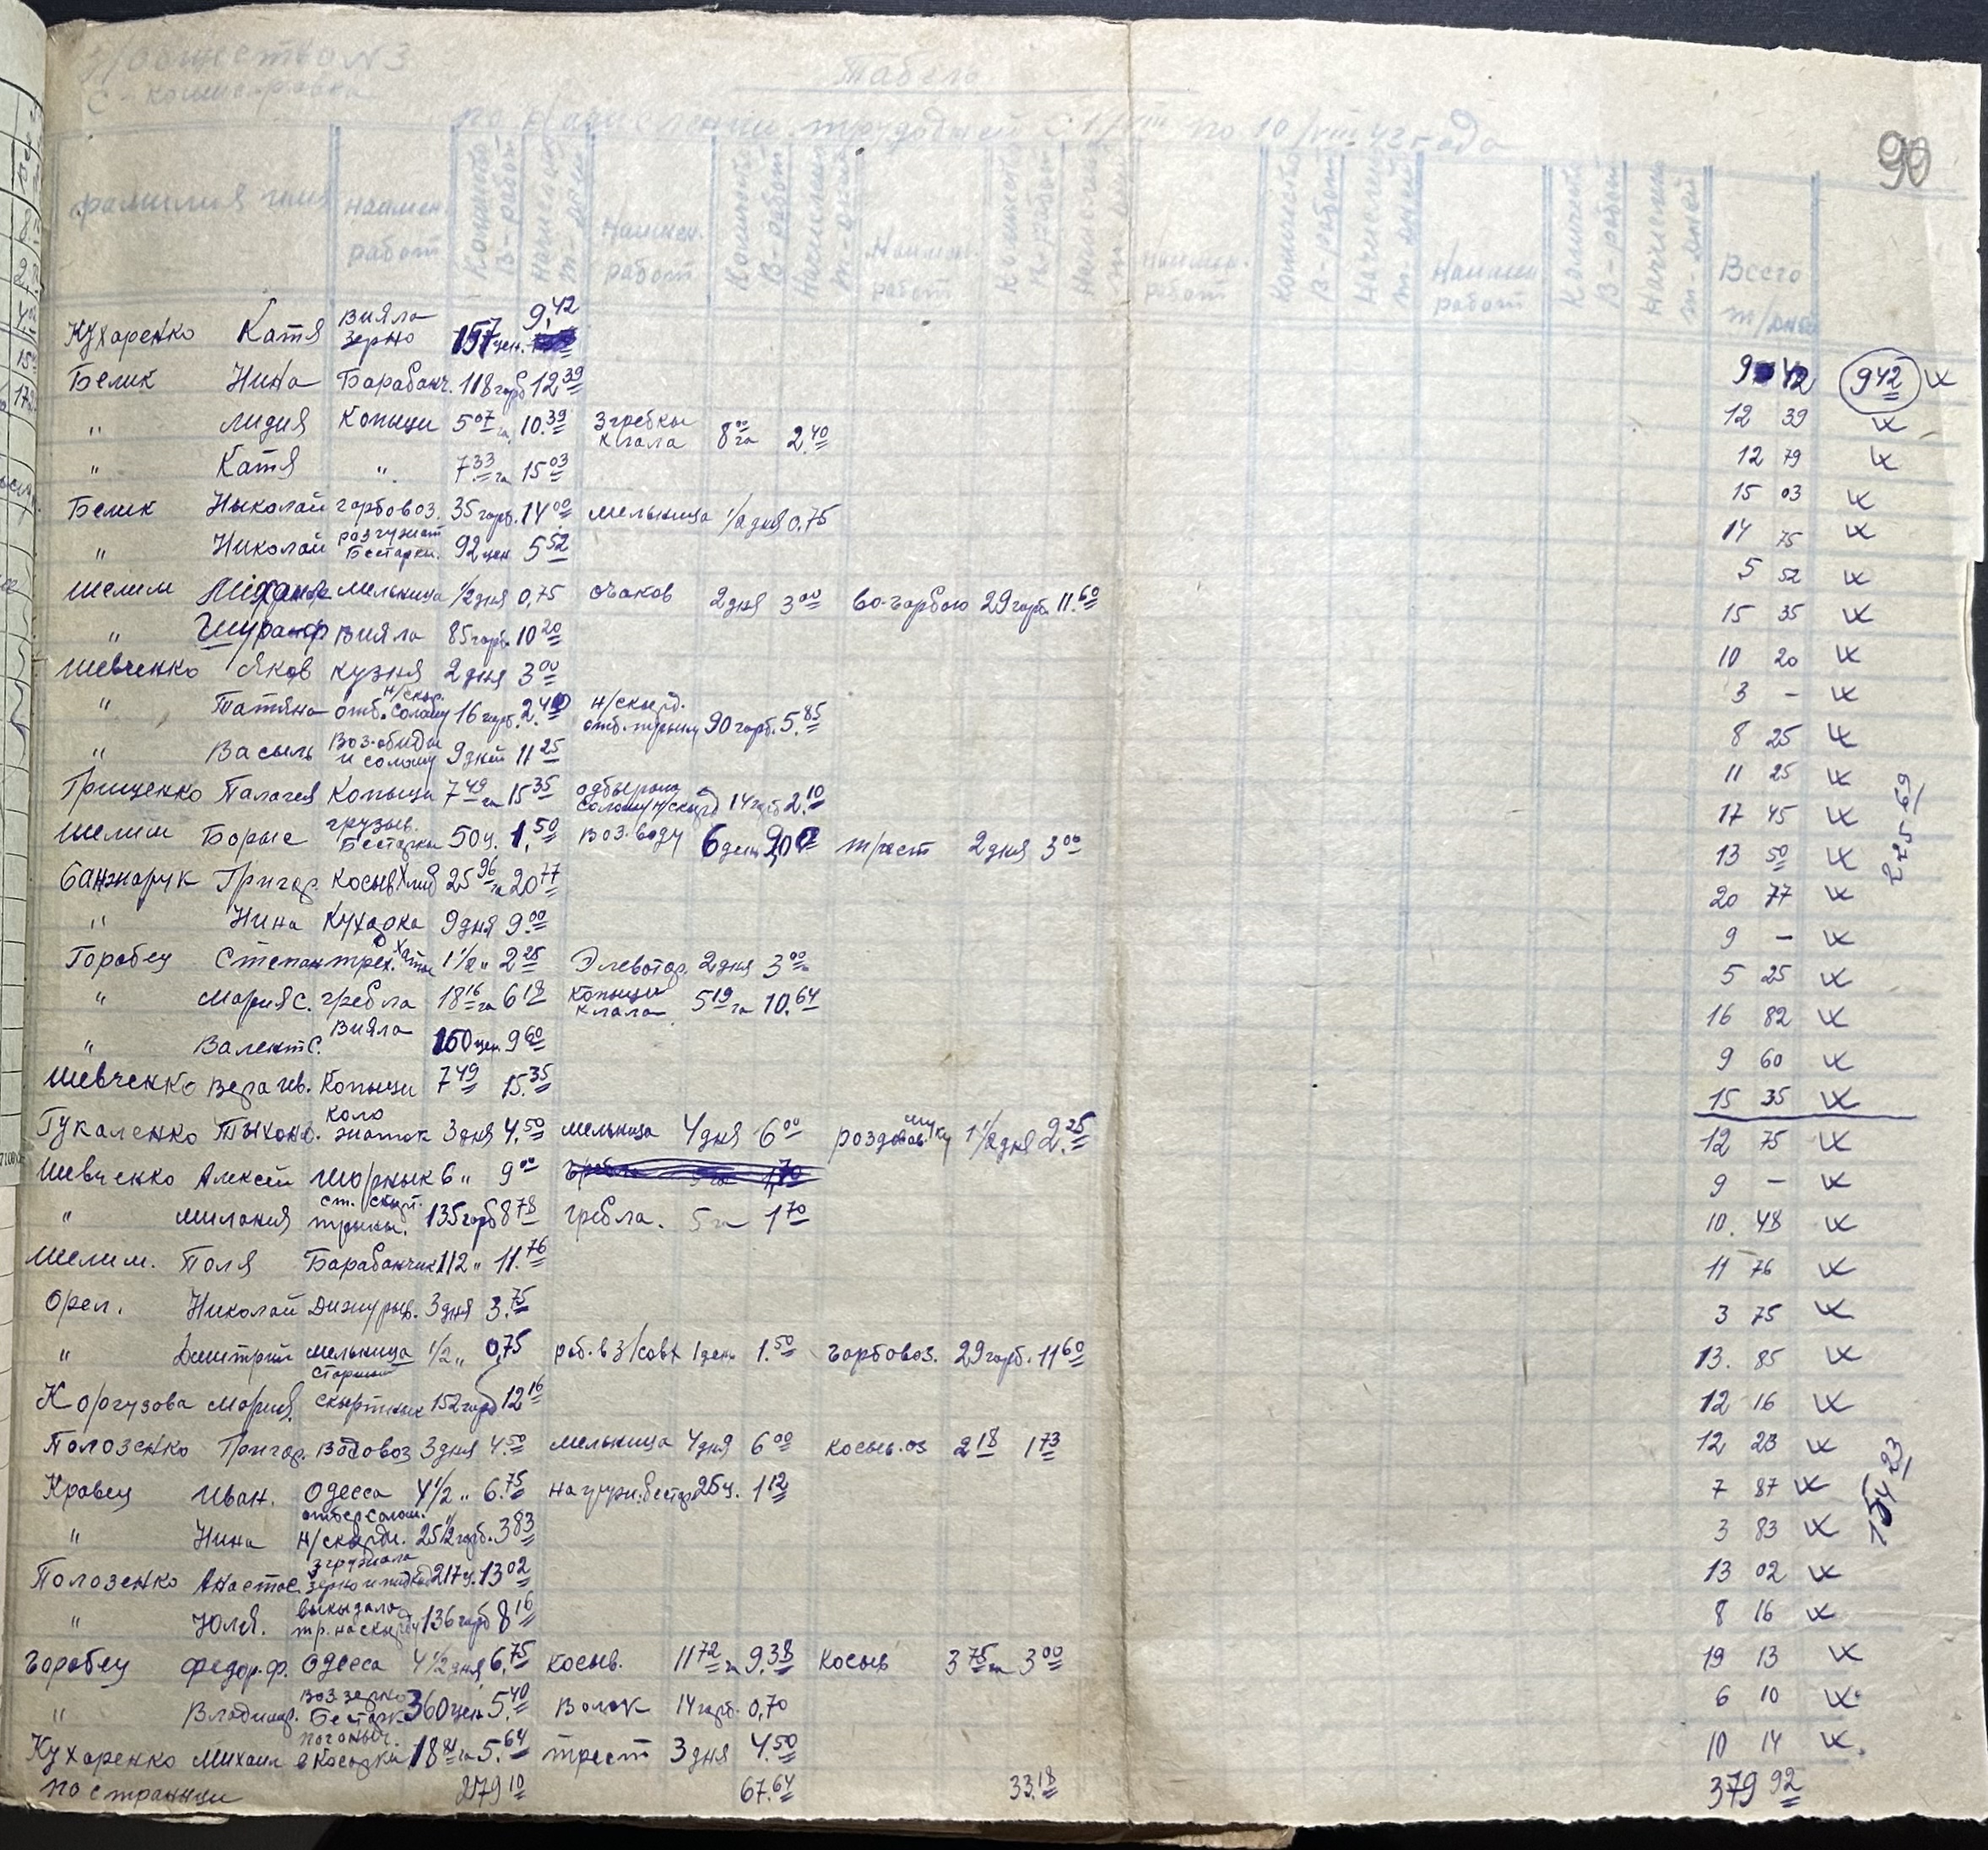 Общество N 3
Табель
по начислении трудодней с 1/VIII по 10/VIII 42 года
90
фамилия имя Наимен. работ Количество В-работ Начислен т-дней Наимен. работ Количеств В-работ Начислен т-дней Наимен. работ Количество В-работ Начислен т-дней Наимен. работ Количество В-работ Начислен т-дней Наимен работ Количеств В-работ Начислен т-дней Всего т/дней
Кухаренко Катя Вияла зерно 157 цен. 9,42 9 42 942
Белик Нина Барабанч. 118 гарб 12 39 12 39
" Лидия Копыци 5 07 га 10.39 Згребки клала 8 00 га 2.40 12 79
" Катя " 7 33 га 15 03 15 03
Белик Ныколай гарбовоз. 35 гарб. 14 00 мельныца 1/2 дня 0,75 14 75
" Николай разгружат Бестарки. 92 цен 5 52 5 52
Шелим мельныца 1/2 дня 0,75 Очаков 2 дня 3 00 во-гарбою 29 гарб. 11.60 15 35
" Шура Вияла 85 гарб. 10 20 10 20
Шевченко Яков кузня 2 дня 3 00 3 -
" Татяна отб. солому н/скир. 16 гарб. 2.40 н/скырд. отб. трыны 90 гарб. 5.85 8 25
" Васыль Воз. обиды и солому 9 дней 11 25 11 25
Грищенко Палагея Копыци 7 49 га 15 35 одбырала солому н/скырд 14 гарб 2.10 17 45
Шелим Борыс грузыв. Бестарки 50 ц. 1,50 воз. воду 6 ден 9,00 т/рест 2 дня 3 00 13 50
Банжарук Григор. Косыв хлиб 25 96 га 20 77 20 77
" Нина Кухарка 9 дня 9.00 9 -
Горобец Степан хаты 1 1/2 " 2 25 Элеватор 2 дня 3 00 5 25
" Мария С. гребла 18 16 га 6 18 Копыци клала 5 19 га 10.64 16 82
" Валент С. Вияла 160 цен. 9 60 9 60
Шевченко Вера ив. Копыци 7 49 15.35 15 35
Гукаленко Тыхон. коло 3 дня 4.50 мельныца 4 дня 6 00 роздавав муку 1 1/2 дня 2.25 12 75
Шевченко Алексей шорнык 6 " 9 00 9 -
" Милания ст. скырт. трыны. 135 гарб 8 78 гребла. 5 га 1 70 10. 48
Шелим. Поля Барабанчик 112 " 11.76 11 76
Орел. Николай Дижурыв. 3 дня 3.75 3 75
" Дмитрий мельныца 1/2 " 0,75 раб. в З/совх 1 ден 1.50 гарбовоз. 29 гарб. 11 60 13. 85
Коргузова Мария. старший скыртнык 152 гарб 12 16 12 16
Полозенко Григор. Водовоз 3 дня 4.50 мельныца 4 дня 6 00 косыв. оз 2 18 1 73 12 23
Кравец Иван. Одесса 4 1/2 " 6.75 нагрун. бестар 25 ц. 1 12 7 87
" Нина отбер солом. н/скырди. 25 1/2 гарб. 3 83 3 83
Полозенко Анастас. згружала зерно и 217 ц. 13 02 13 02
" Юля. выкыдала тр. на скырду 136 гарб 8 16 8 16
Горобец Федор. Ф. Одесса 4 1/2 дня 6.75 косыв. 11 72 га 9.38 Косыв 3 75 га 3 00 19 13
" Владимир. воз зерно Бестарк 360 цен. 5.40 Волок 14 гарб. 0,70 6 10
Кухаренко Михаил поганыч. в Косарки 18 га 5.64 трест 3 дня 4.50 10 14
по странци 279 10 67.64 33.18 379 92
225 69
154 23